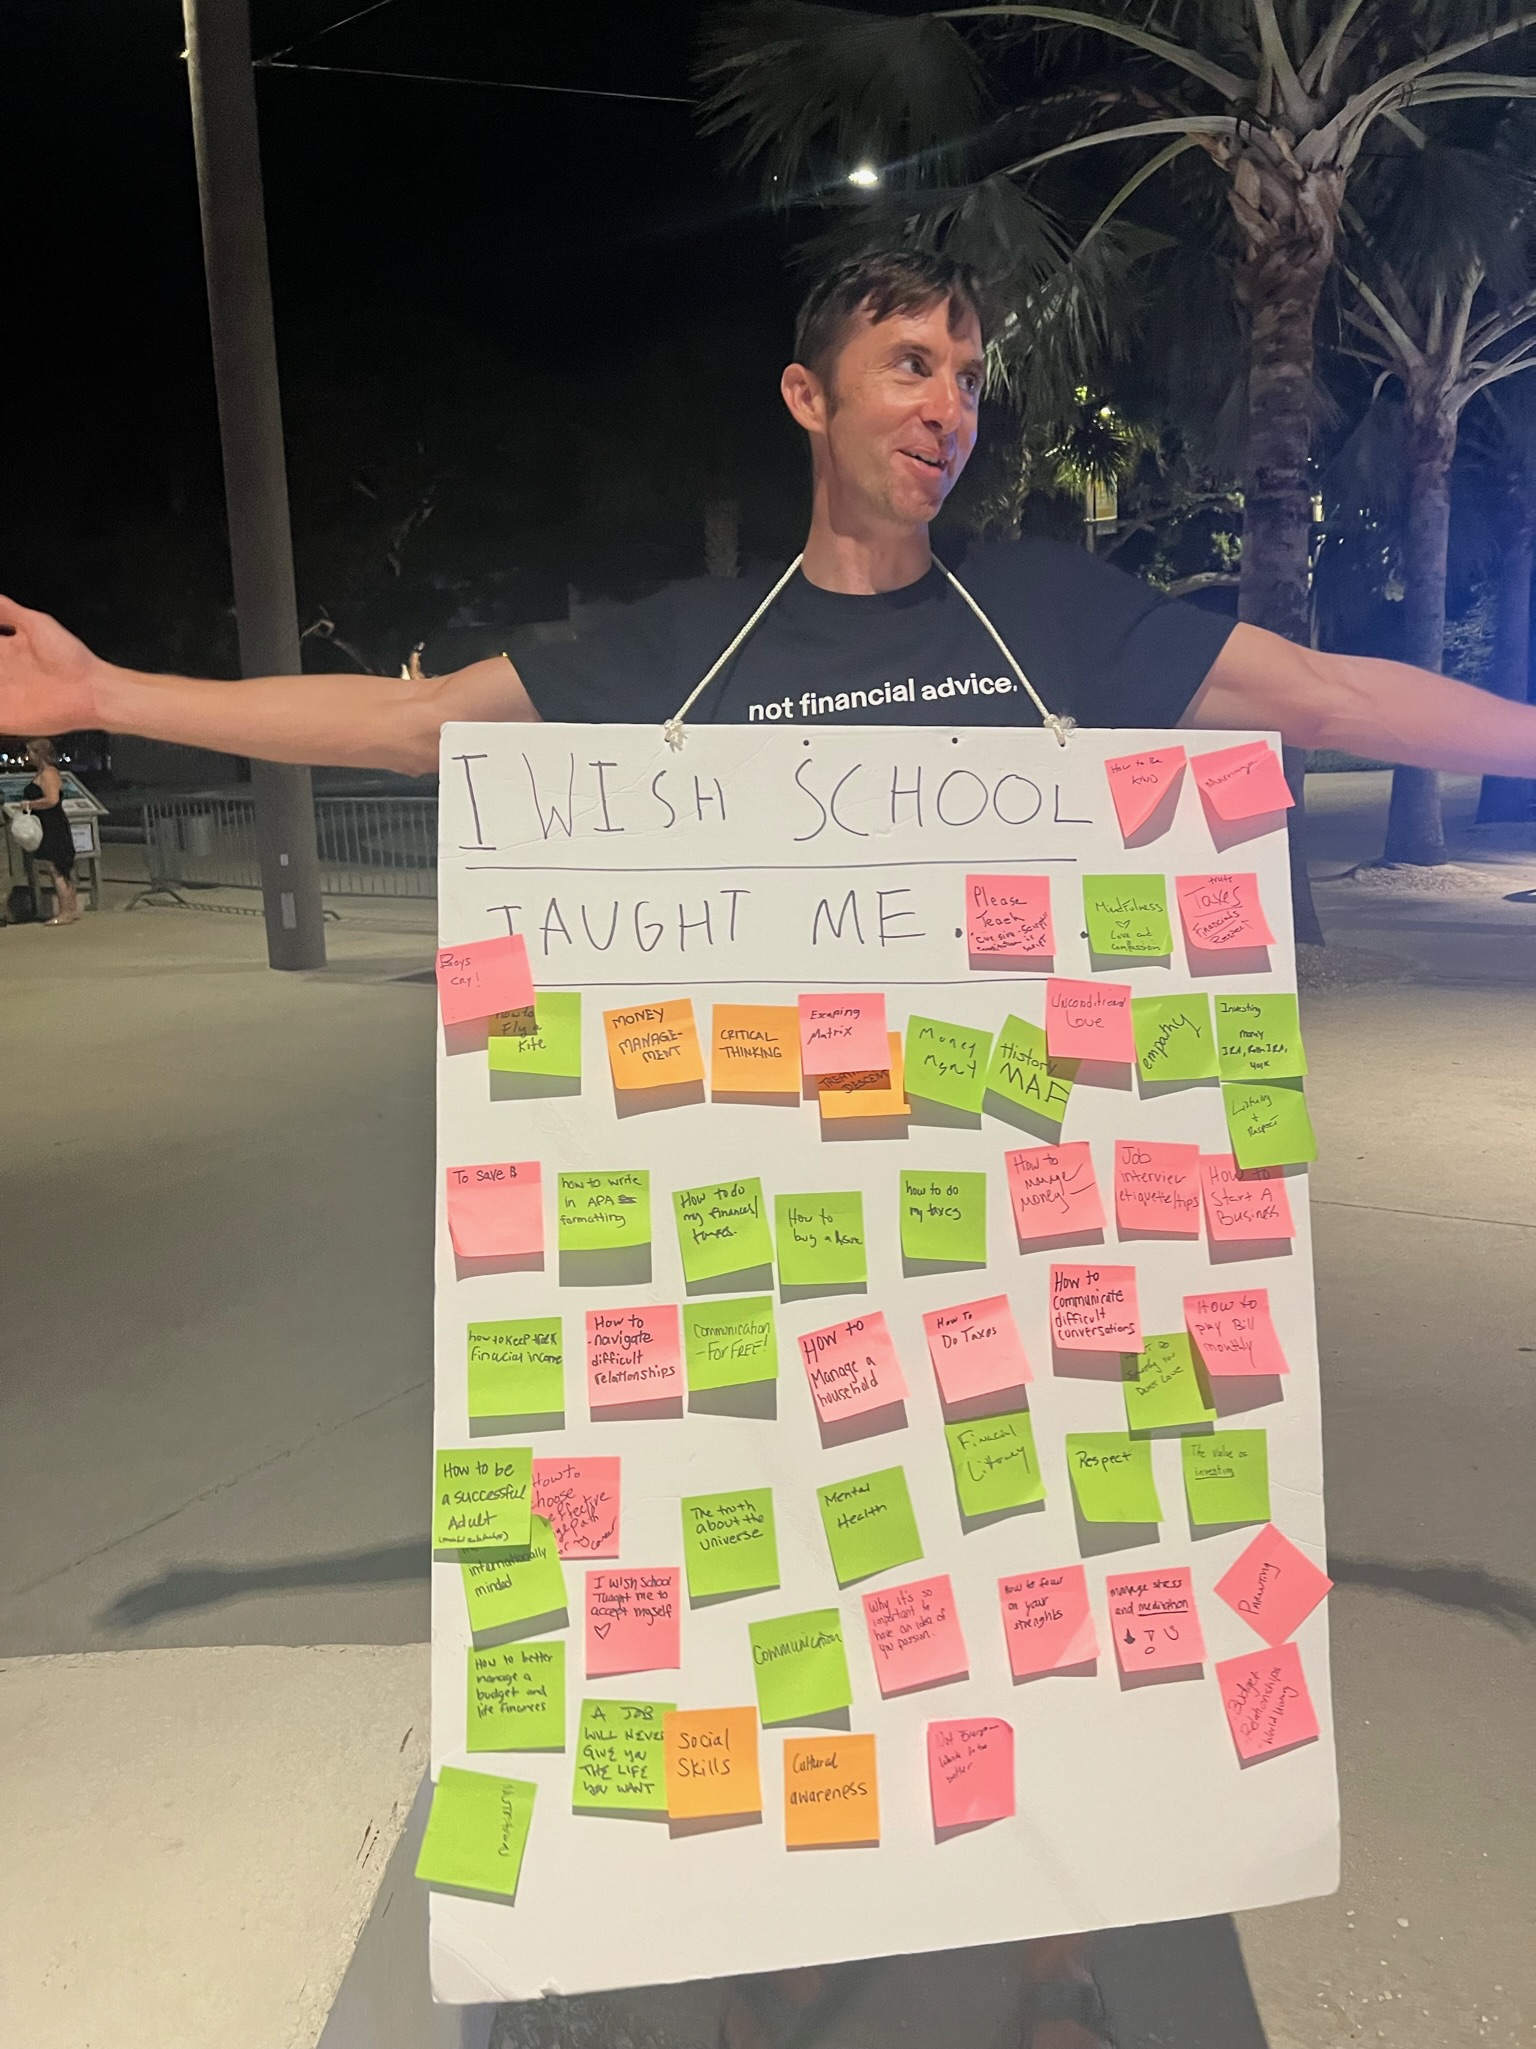 not financial advice.
I WISH SCHOOL
How to Be
KIND
Marriage
TAUGHT ME
Please
Teach
Mindfulness
Love and
compassion
Taxes
Financials
Respect
Boys
CRY!
How to
Fly a
Kite
MONEY
MANAGE-
MENT
CRITICAL
THINKING
Escaping
Matrix
DESCENT
Money
Mgmt
History
MAF
Unconditional
Love
empathy
Investing
money
IRA, Roth IRA,
401K
Listening
+
Respect
To save $
how to write
in APA
formatting
How to do
my finances/
taxes.
How to
buy a house
how to do
my taxes
How to
manage
money
Job
interview
etiquette/tips
How to
Start A
Business
how to keep track
financial income
How to
navigate
difficult
relationships
Communication
-For FREE!
How to
Manage a
household
How To
Do Taxes
How to
communicate
difficult
conversations
How to
pay Bill
monthly
How to be
a successful
Adult
How to
choose
effective
Financial
Literacy
Respect
The value of
investing
The truth
about the
universe
Mental
Health
internationally
minded
I wish School
Taught me to
accept myself
Communication
Why it's so
important to
have an idea of
you passion.
How to focus
on your
strenghts
manage stress
and medication
PARENTING
How to better
manage a
budget and
life finances
Budget
Relationships
A JOB
WILL NEVER
GIVE you
THE LIFE
YOU WANT
Social
Skills
Cultural
awareness